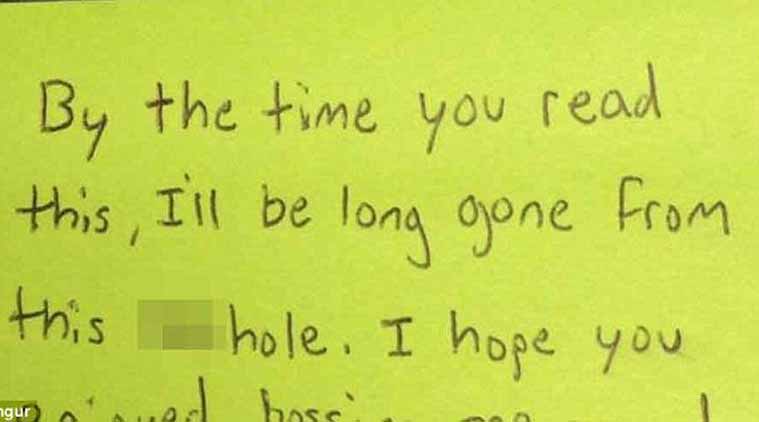 By the time you read
this, I'll be long gone from
this hole. I hope you
ngur